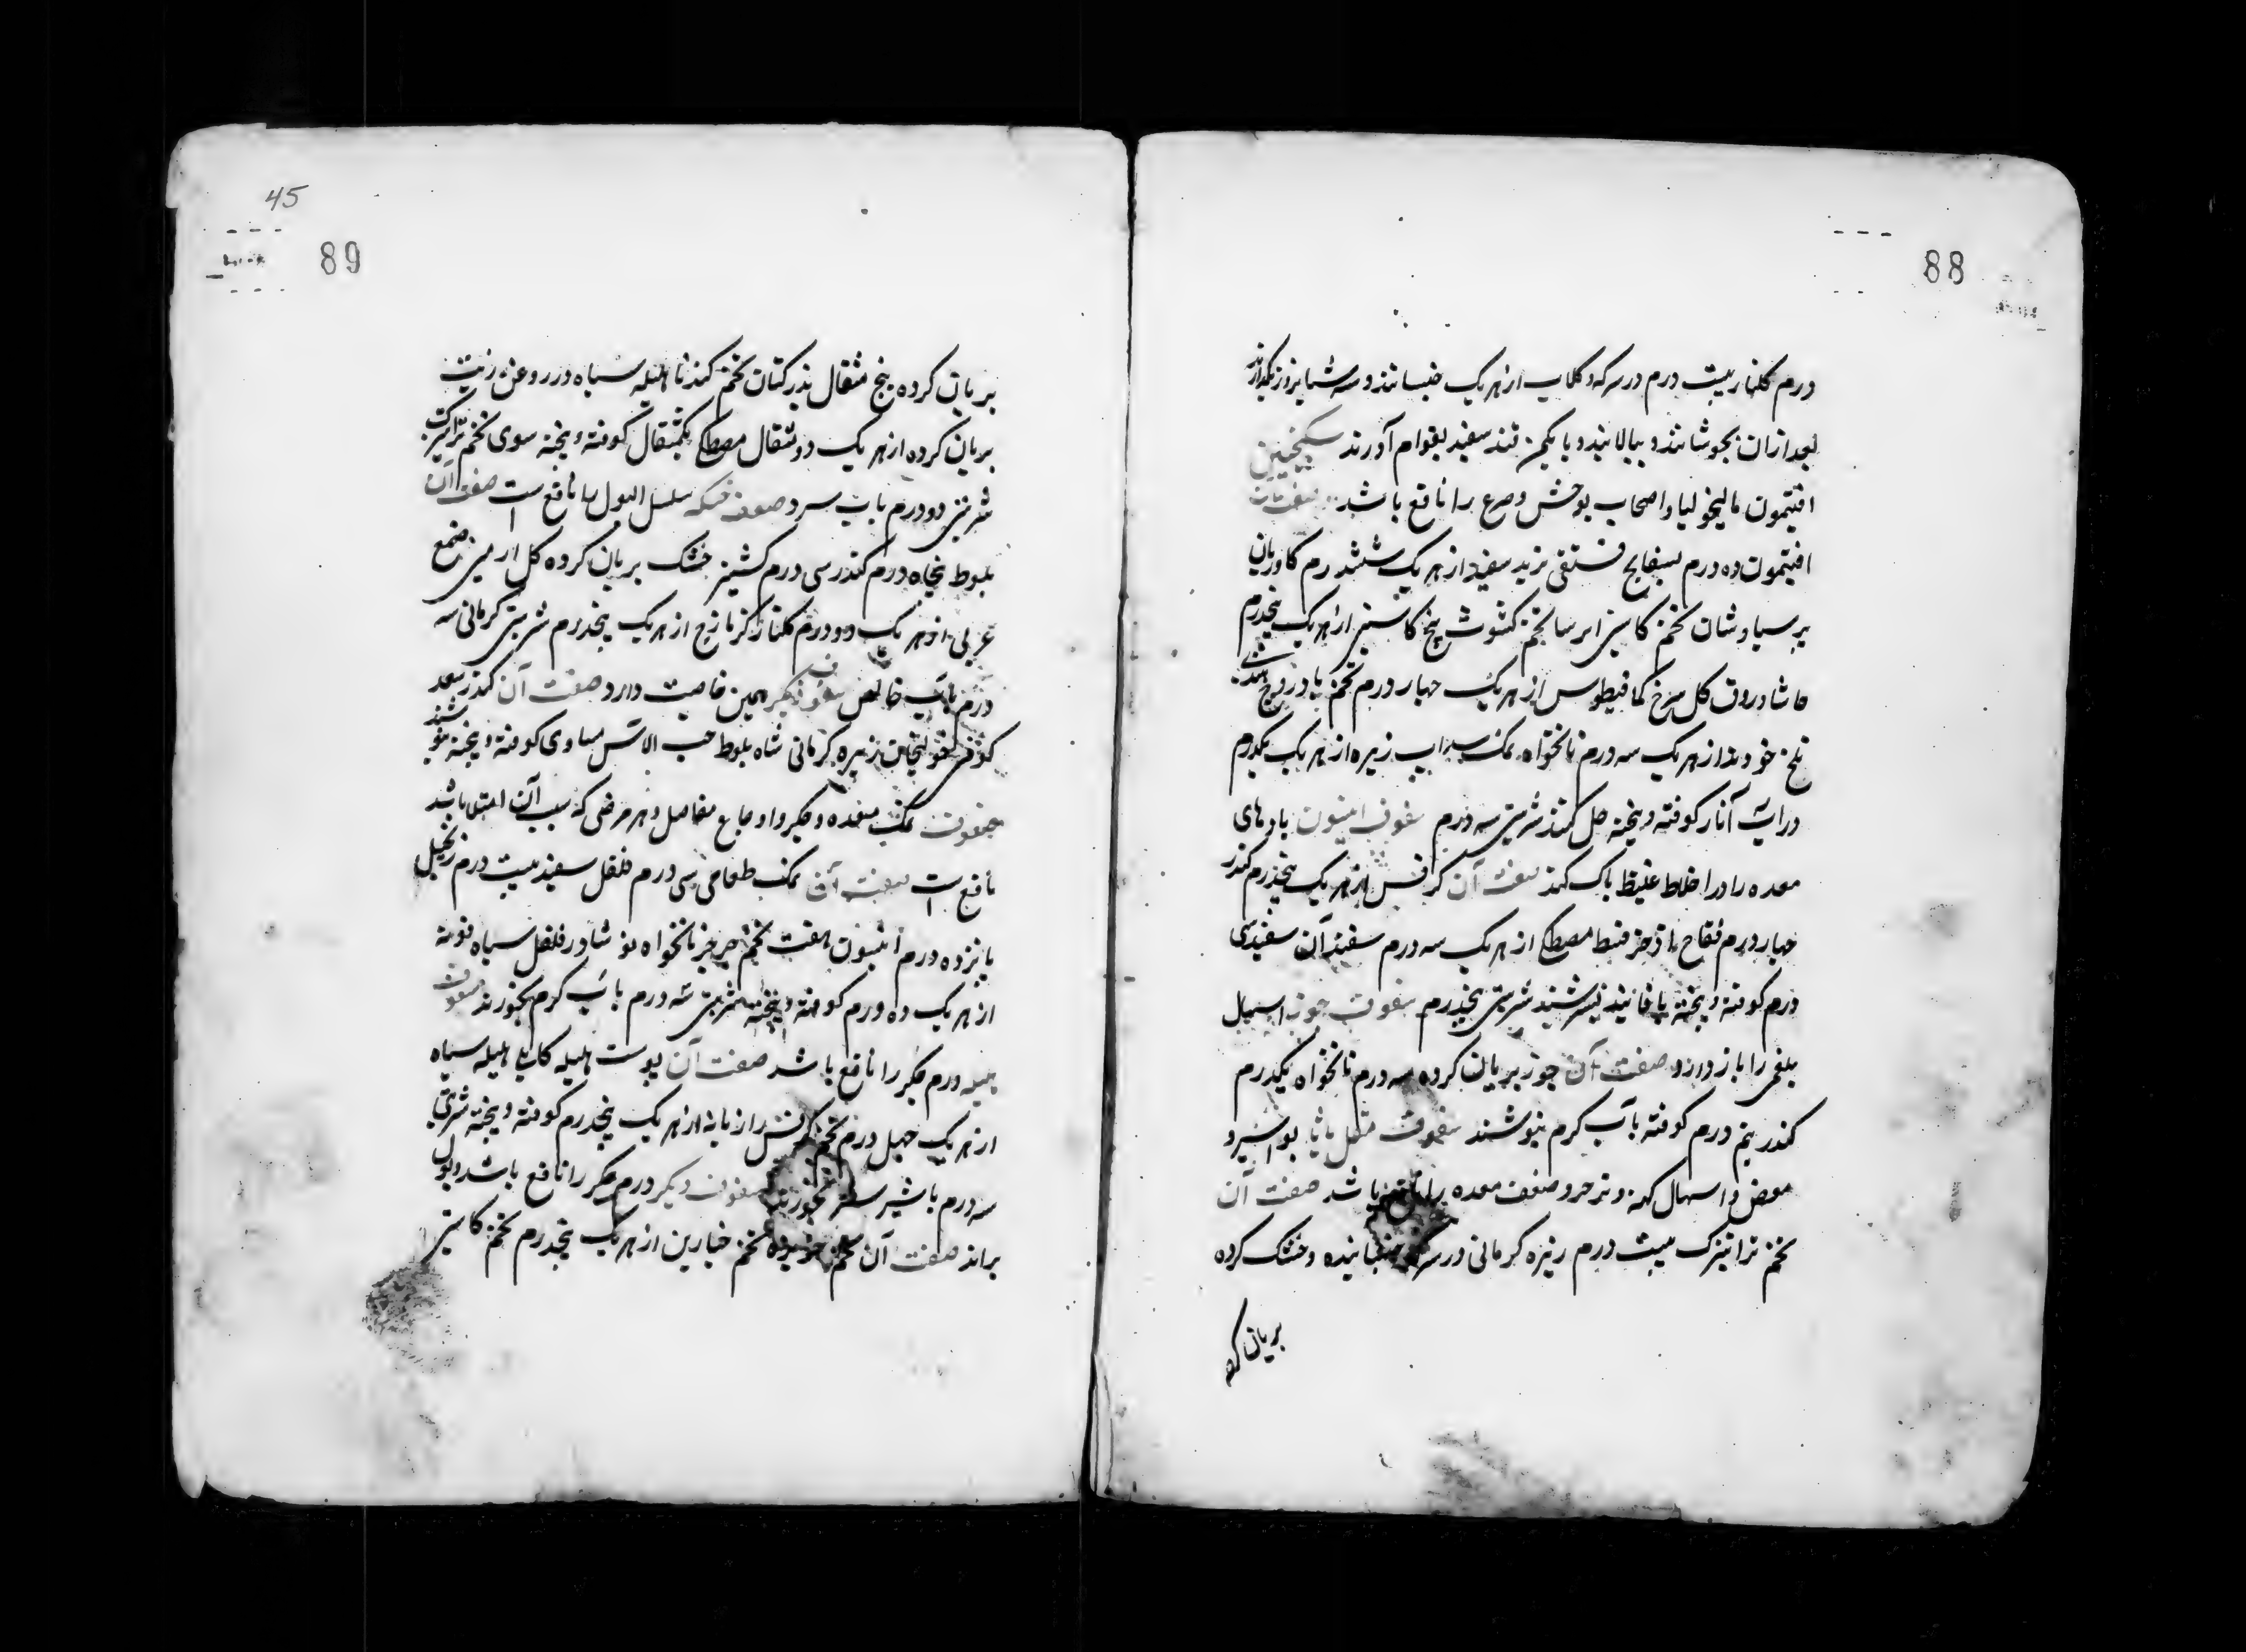 88
درم کلنار بیست درم در سرکه و کلاب از هریک خیسانند و سه شبانروز بگذارند
بعد ازان بجوشانند و بپالایند و با یکمن قند سفید بقوام آورند سکنجبین
افتیمون مالیخولیا و اصحاب بوحش و صرع را نافع باشد صفت آن
افتیمون ده درم بسفایج فستقی تربد سفید از هریک ششدرم کاوزبان
پرسیاوشان تخم کاسنی ایرسا تخم کشوث بیخ کاسنی از هریک پنجدرم
حاشا ورق کل سرخ کمافیطوس از هریک چهار درم تخم بادروج هندی
تلخ از هریک سه درم نانخواه نمک سداب زیره از هریک یکدرم
در آب انار کوفته و پیخته حل کنند شربتی سه درم سفوف انیسون بادهای
معده را و اخلاط غلیظ پاک کند صفت آن کرفس از هریک پنجدرم کندر
چهار درم فقاح اذخر قسط مصطکی از هریک سه درم سفید آن سفید سی
درم کوفته و پیخته با فانید بسرشند شربتی پنجدرم سفوف جوز اسهال
بلغمی را باز دارد صفت آن جوز بریان کرده سه درم نانخواه یکدرم
کندر نیم درم کوفته بآب کرم بنوشند سفوف مقلیاثا بواسیر و
مغص و اسهال کهنه و تزحر و ضعف معده را نافع باشد صفت آن
تخم تراتیزک بیست درم زیره کرمانی در سرکه خیسانیده و خشک کرده
بریان کرده
45
89
بریان کرده پنج مثقال بذر کتان تخم کندنا هلیله سیاه در روغن زیت
بریان کرده از هریک دو مثقال مصطکی یکمثقال کوفته و پیخته سوی تخم تراتیزک
شربتی دو درم بآب سرد سفوف خسکه سلسل البول را نافع است صفت آن
بلوط پنجاه درم کندر سی درم کشنیز خشک بریان کرده کل ارمنی صمغ
عربی از هریک دو درم کلنار کزمازج از هریک پنجدرم شربتی کرمانی سه
درم بآب خالص سفوف دیکر همین خاصیت دارد صفت آن کندر سعد
کوفی خولنجان زیره کرمانی شاه بلوط حب الآس مساوی کوفته و پیخته بنوشند
سفوف نمک معده و جکر و اوجاع مفاصل و هر مرضی که سبب آن امتلا باشد
نافع است صفت آن نمک طعامی سی درم فلفل سفید بیست درم زنجبیل
پانزده درم انیسون هفت تخم جرجیر نانخواه نوشادر فلفل سیاه فوتنه
از هریک ده درم کوفته و پیخته شربتی سه درم بآب کرم بخورند سفوف
هلیله ورم جکر را نافع باشد صفت آن پوست هلیله کابلی هلیله سیاه
از هریک چهل درم تخم کرفس رازیانه از هریک پنجدرم کوفته و پیخته شربتی
سه درم با شیر شتر بخورند سفوف دیکر ورم جکر را نافع باشد و بول
براند صفت آن تخم خربوزه تخم خیارین از هریک پنجدرم تخم کاسنی